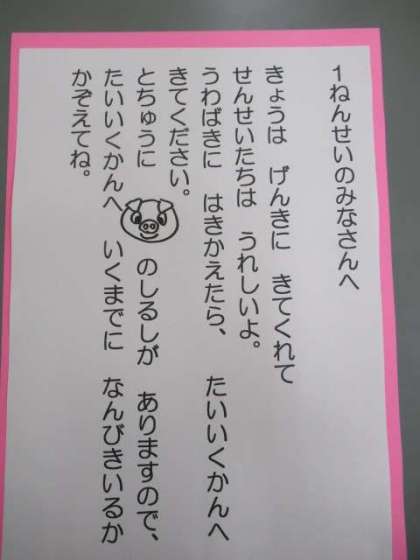 1ねんせいのみなさんへ
きょうは　げんきに　きてくれて
せんせいたちは　うれしいよ。
うわばきに　はきかえたら、　たいいくかんへ
きてください。
とちゅうに　のしるしが　ありますので、
たいいくかんへ　いくまでに　なんびきいるか
かぞえてね。